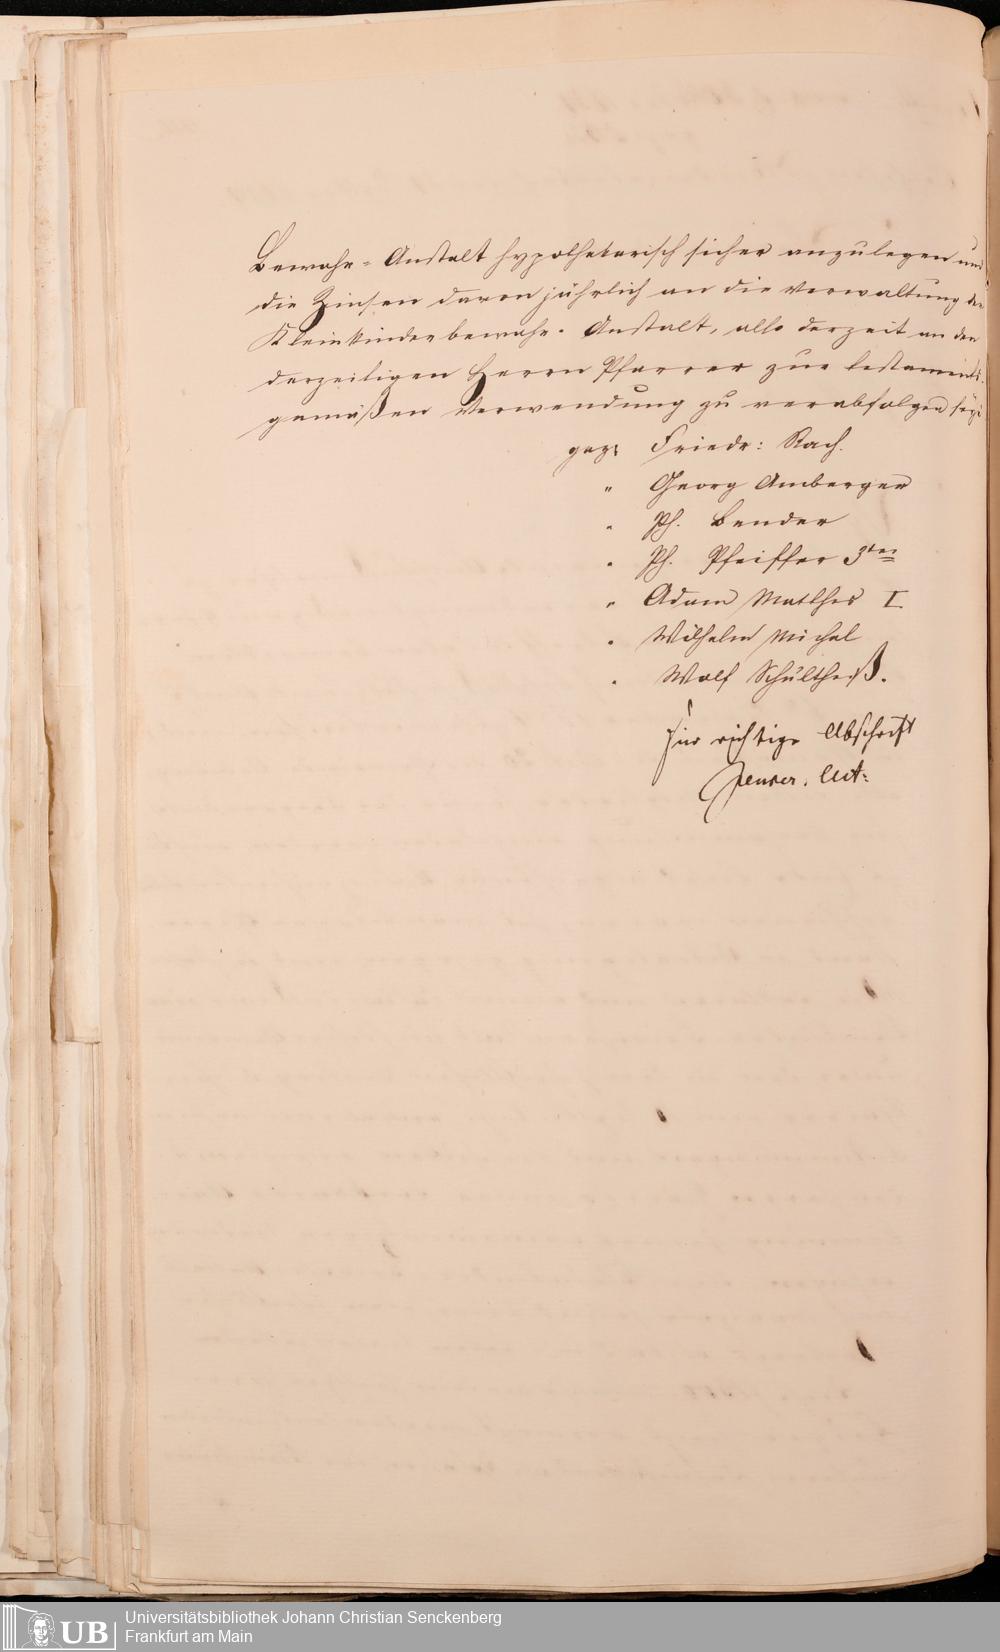 Bewahr-Anstalt hypothekarisch sicher anzulegen und
die Zinsen davon jährlich an die Verwaltung der
Kleinkinderbewahr-Anstalt, also derzeit an den
derzeitigen Herrn Pfarrer zur testaments-
gemäßen Verwendung zu verabfolgen
gez. Friedr: Rach.
" Georg Amberger
" Ph. Bender
" Ph. Pfeiffer 3ter
" Adam Matthes I
" Wilhelm Michel
" Wolf Schültheiß.
Für richtige Abschrift
UB
Universitätsbibliothek Johann Christian Senckenberg
Frankfurt am Main